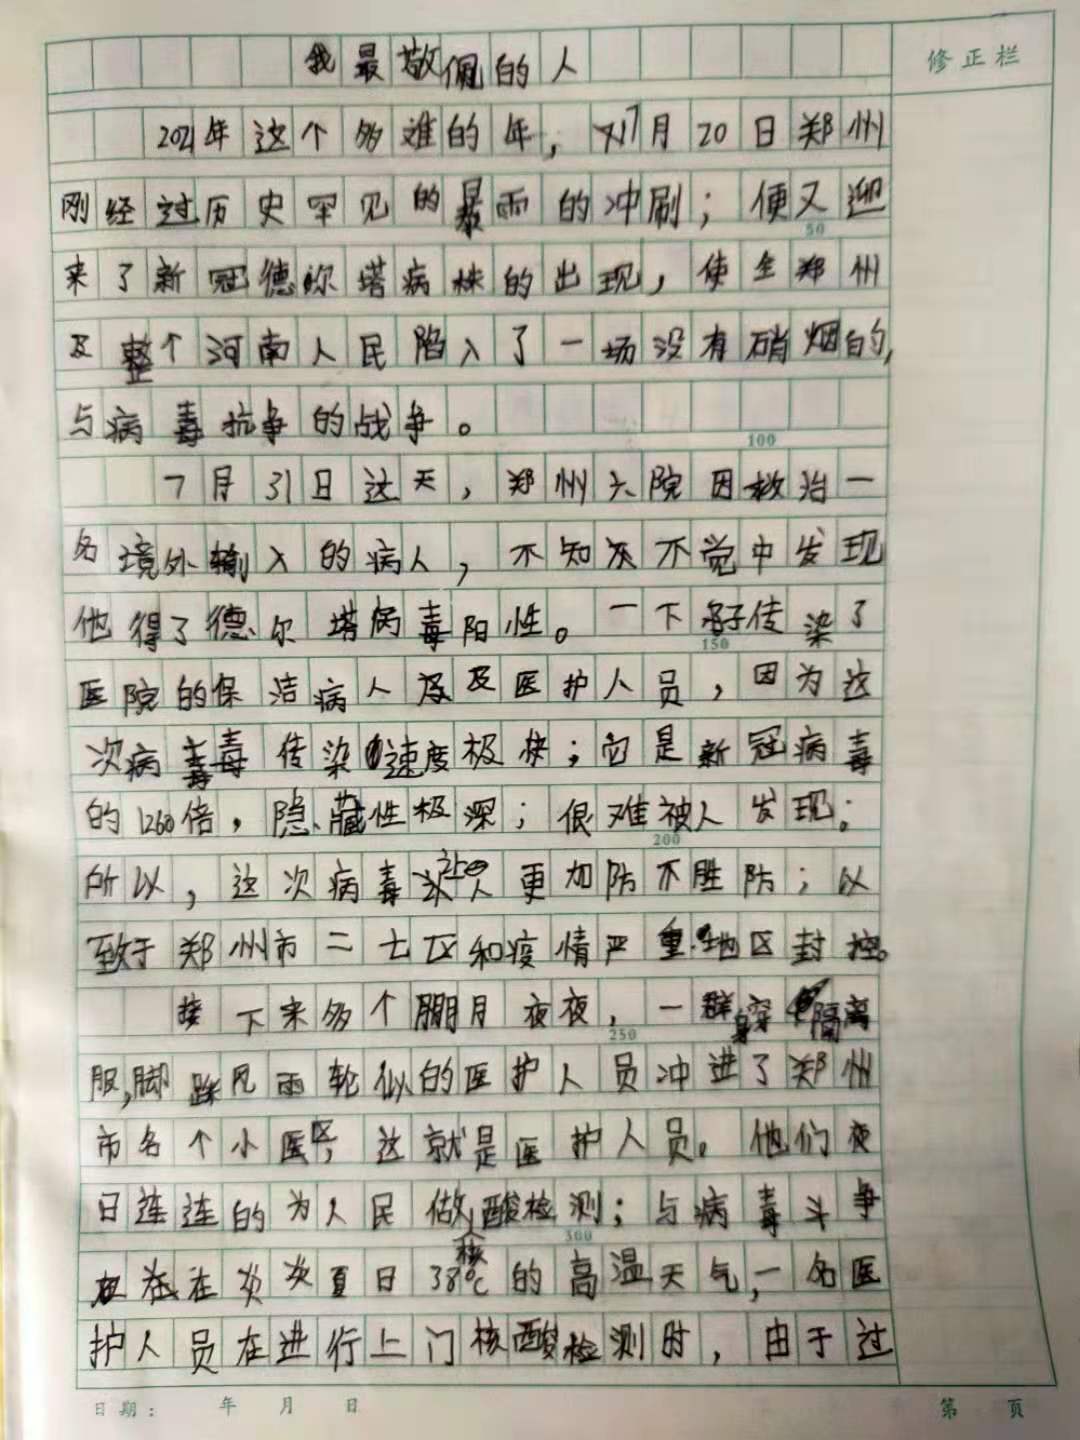 我最敬佩的人
修正栏
2021年这个多难的年，刘7月20日郑州
刚经过历史罕见的暴雨的冲刷；便又迎
50
来了新冠德尔塔病株的出现，使全郑州
及整个河南人民陷入了一场没有硝烟的,
与病毒抗争的战争。
100
7月31日这天，郑州六院因救治一
名境外输入的病人，不知不觉中发现
他得了德尔塔病毒阳性。一下子传染了
150
医院的保洁病人及医护人员，因为这
次病毒传染速度极快；它是新冠病毒
的1260倍，隐藏性极深；很难被人发现；
200
所以，这次病毒 更加防不胜防；以
至致于郑州市二七区和疫情严重地区封控。
接下来多个 月夜夜，一群身穿隔离
250
服,脚踩风雨轮似的医护人员冲进了郑州
市各个小区，这就是医护人员。他们夜
日连连的为人民做核酸检测；与病毒斗争
300
在炎炎夏日38℃的高温天气,一名医
护人员在进行上门核酸检测时，由于过
日期： 年 月 日
第 页